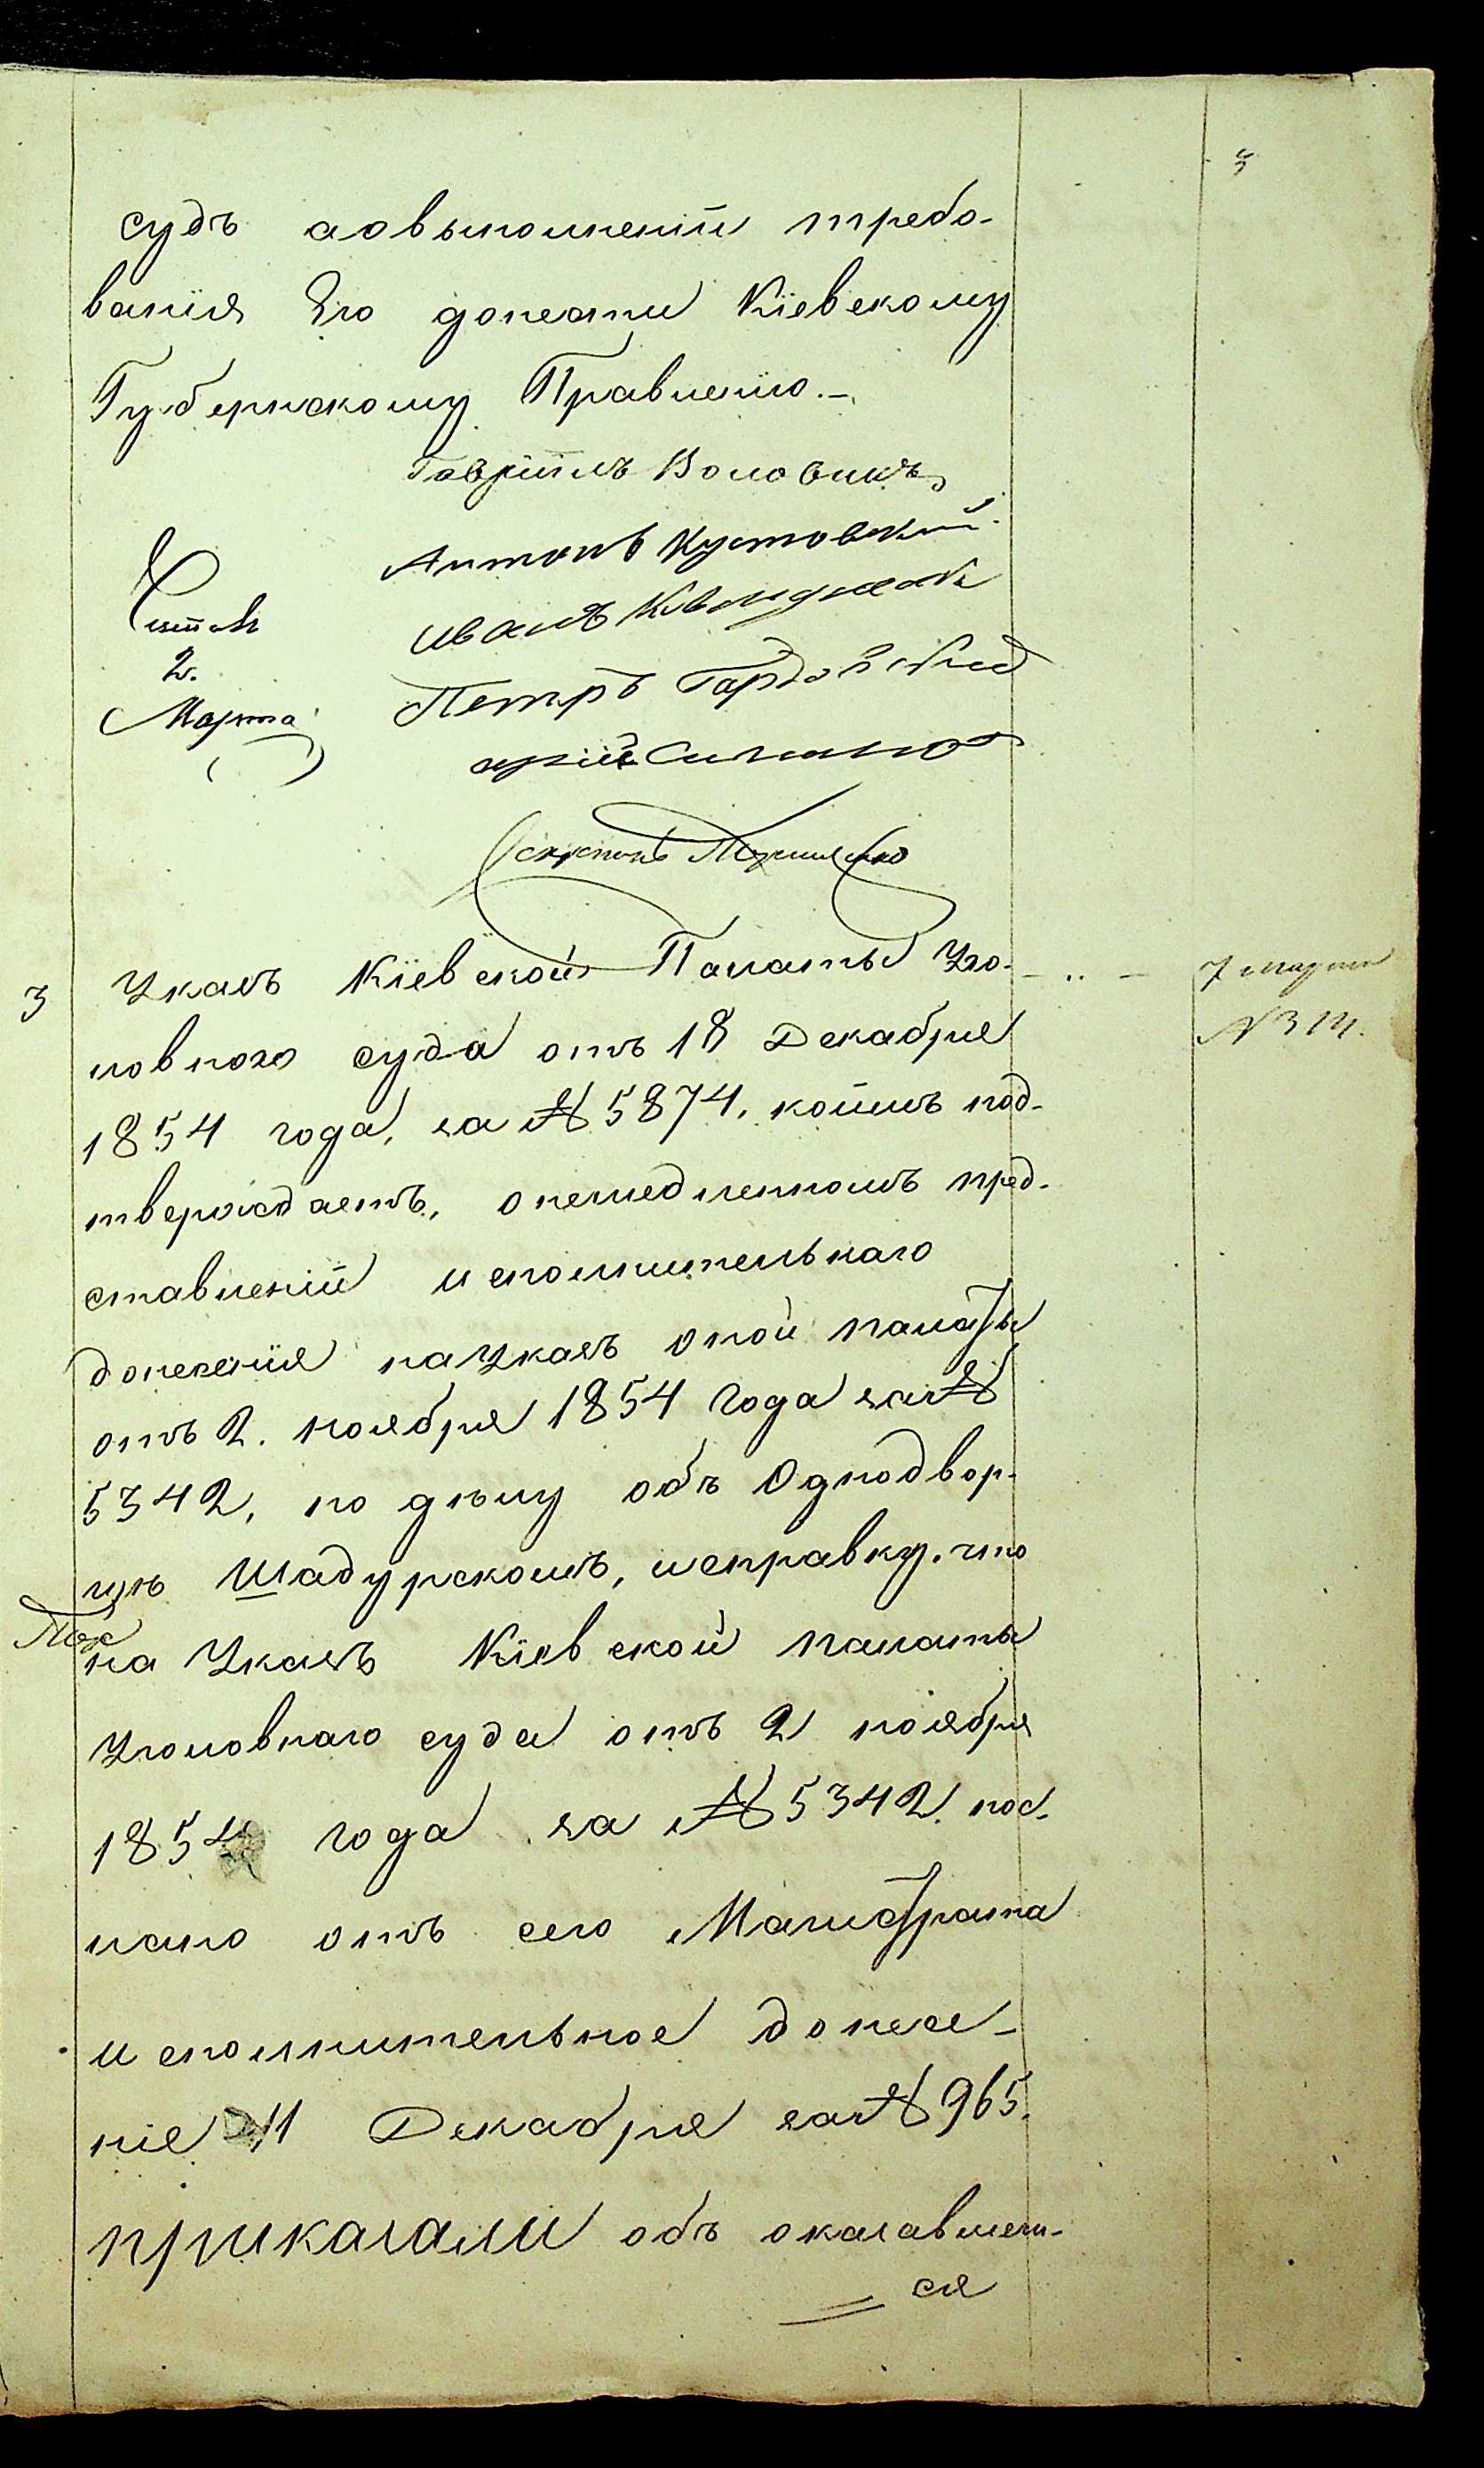 5
судъ аовыполненіи требо-
ванія Его донести Кіевскому
Губернскому Правленію.-
Гавріилъ Воловикъ
Антонъ Кустовскій
Иванъ
Петръ
Читалъ
2.
Марта
Скрѣпилъ
3 Указъ Кіевской Палаты Уго-
7 марта
№ 314.
ловного суда отъ 18 Декабря
1854 года, за № 5874, коимъ под-
тверждаетъ, онемедленномъ пред-
ставленіи исполнительнаго
донесенія наУказъ оной палаты
отъ 2. ноября 1854 года за №
5342, по дѣлу объ Однодвор-
цѣ Шадурскомъ, исправку. что
на Указъ Кіевской палаты
Уголовнаго суда отъ 2 ноября
1854 года за № 5342 пос-
лано отъ сего Магистрата
исполнительное донесе-
ніе 11 Декабря за № 965.
приказали объ оказавшем-
ся